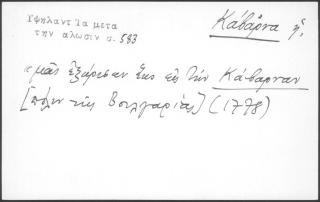 Υψηλαντ Ια μετα
την αλωσιν σ. 583
Κάβαρνα ἡ.
"μᾶς ἐξώρισαν ἕως εἰς τὴν Κάβαρναν
[πόλιν τῆς Βουλγαρίας] (1778)